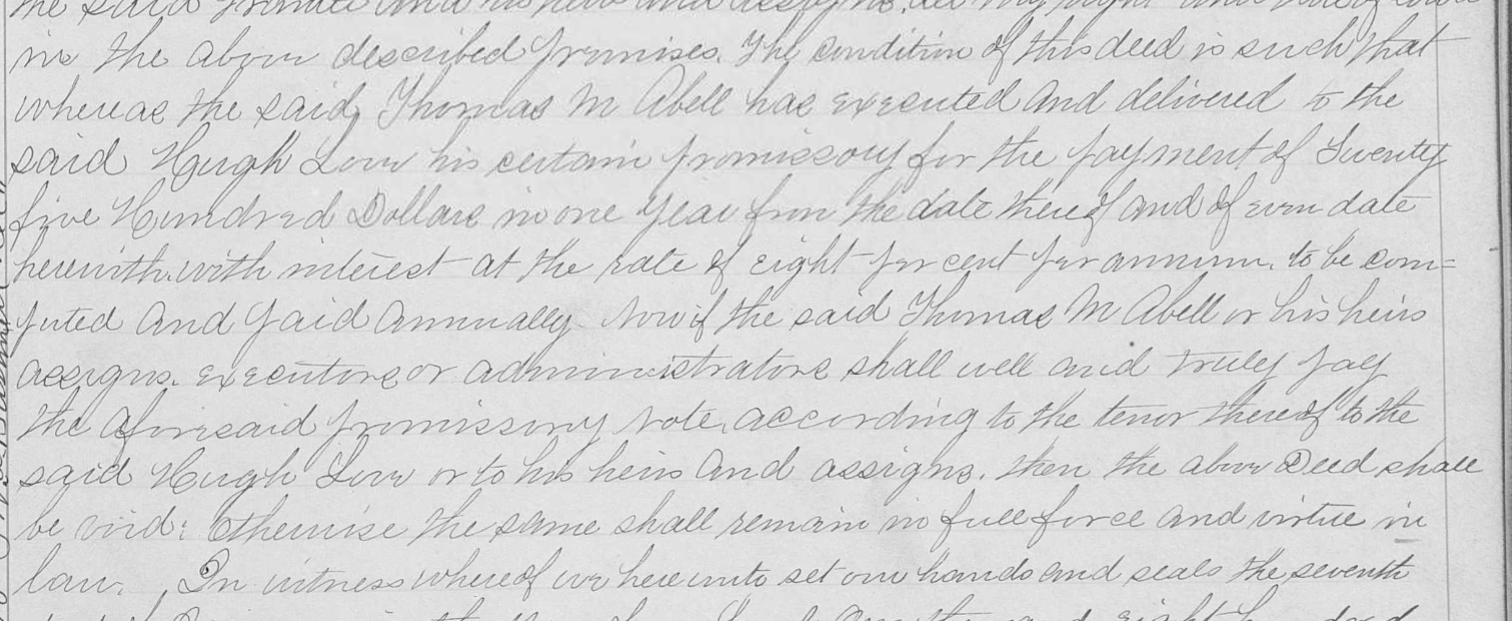 the said Grantee and his heirs and assigns, all my right and
in the above described premises. The condition of this deed is such that
whereas the said Thomas M Abell has executed and delivered to the
said Hugh Love his certain promissory for the payment of Twenty
five Hundred Dollars in one year from the date thereof and of even date
herewith. with interest at the rate of eight per cent per annum. to be com=
puted and paid annually. Now if the said Thomas M Abell or his heirs
assigns. executors or administrators shall well and truly pay
the aforesaid promissory note, according to the tenor thereof to the
said Hugh Love or to his heirs and assigns. then the above Deed shall
be void: Otherwise the same shall remain in full force and virtue in
law. In witness whereof we hereunto set our hands and seals the seventh